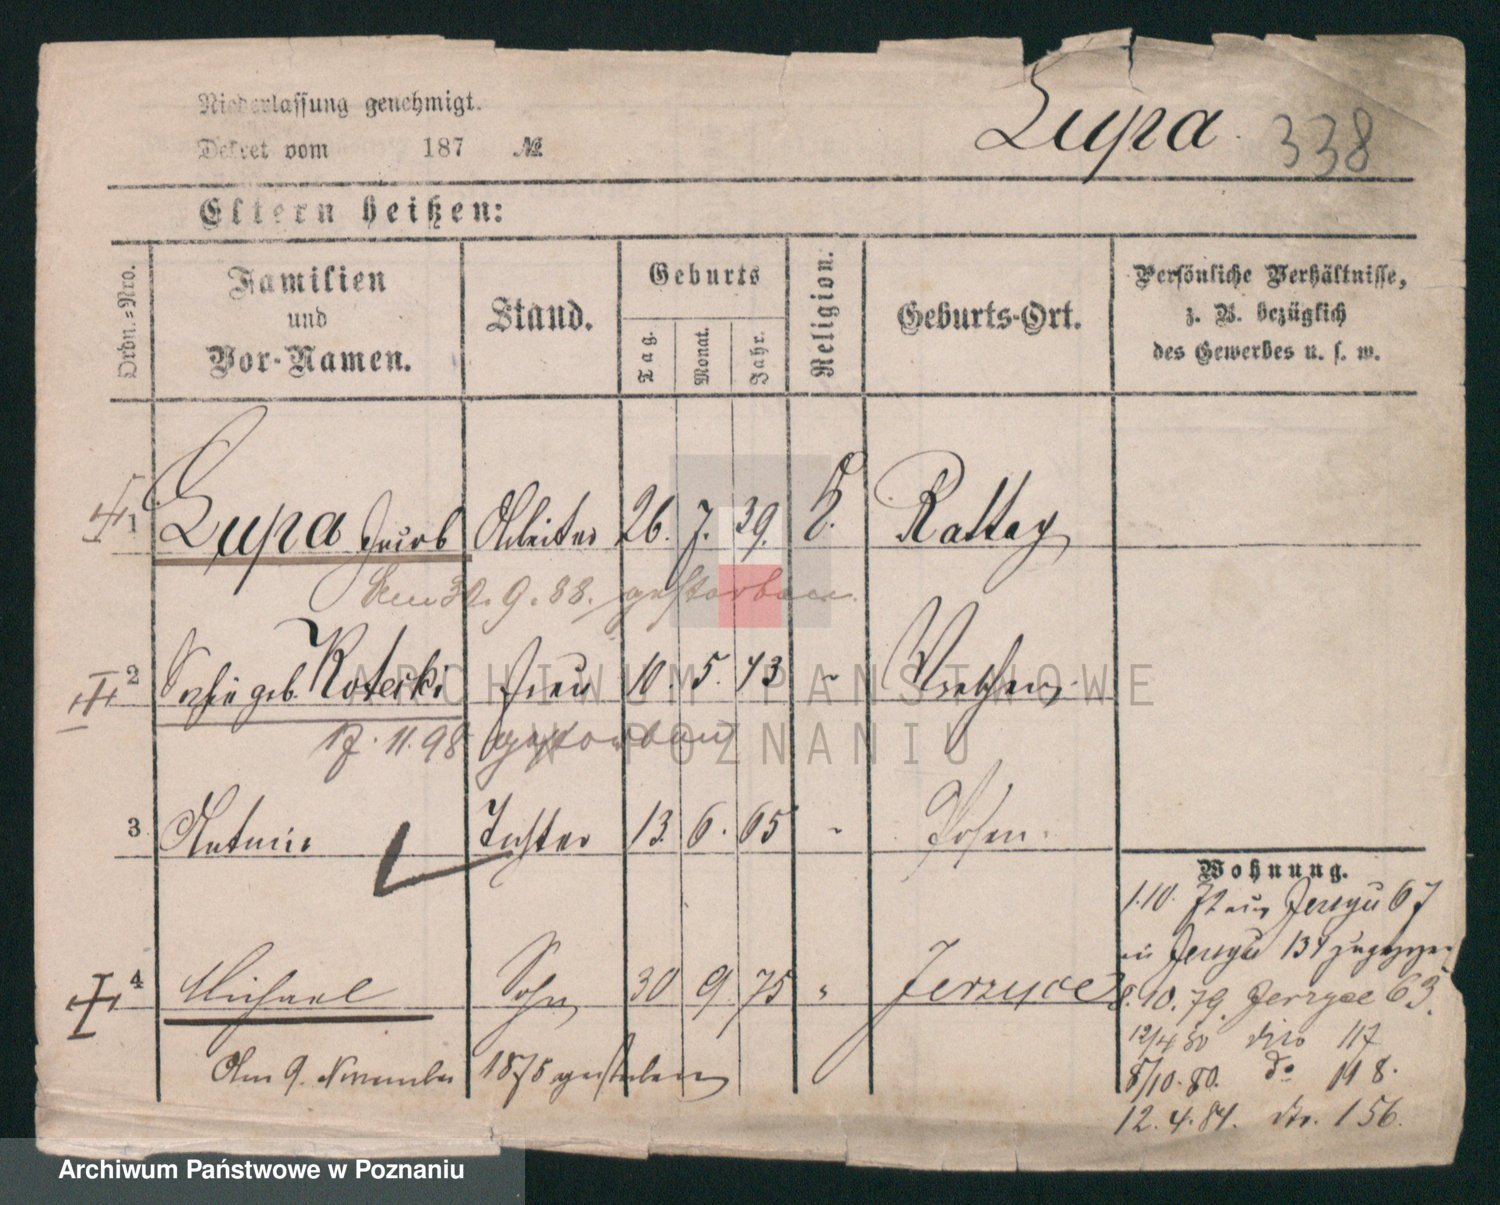 Niederlassung genehmigt.
Dekret vom 187 №
Lupa. 338
Eltern heißen:
Ordn.-Nro.
Familien
und
Vor-Namen.
Stand.
Geburts
Tag.
Monat.
Jahr.
Religion.
Geburts-Ort.
Persönliche Verhältnisse,
z. B. bezüglich
des Gewerbes u. s. w.
1 Lupa Jacob Arbeiter 26. 7. 39. Rattay
gestorben
2 geb. Koterki Frau 10. 5. 43 "
17. 11. 98 gestorben
3 Antonie Tochter 13. 6. 65 " Posen.
4 Michael Sohn 30 9 75 " Jerzyce
Am 9. November 1875 gestorben
Wohnung.
1.10. 72 aus Jerzyce 67
in Jerzyce 134 zugezogen
8.10.79. Jerzyce 63.
12/4 80 dito 117
8/10.80. do 118.
12.4.84. dto. 156.
ARCHIWUM PAŃSTWOWE
W POZNANIU
Archiwum Państwowe w Poznaniu